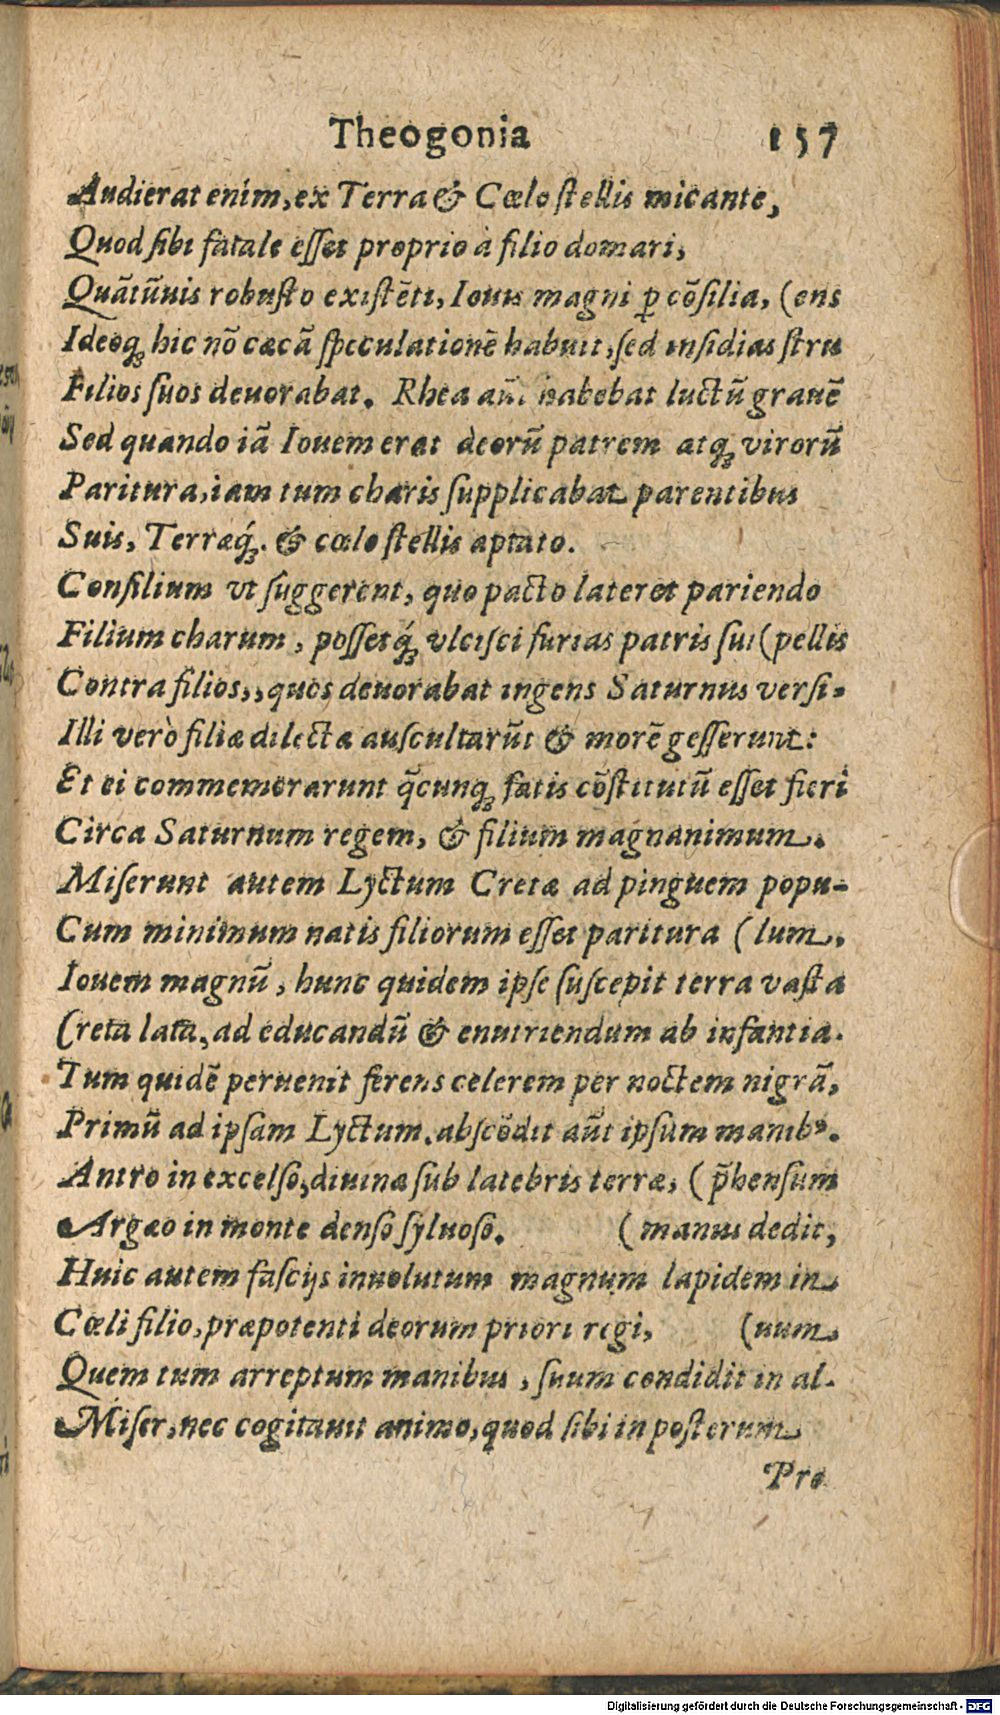 Theogonia 157
Audierat enim, ex Terra & Cœlo ſtellis micante,
Quod ſibi fatale eſſet proprio à filio domari,
Quãtũuis robuſto exiſtẽti, Iouis magni ꝑ cõſilia, (ens
Ideoqꝫ hic nõ cæcã ſpeculationẽ habuit, ſed inſidias ſtru
Filios ſuos deuorabat. Rhea aũt habebat luctũ grauẽ
Sed quando iã Iouem erat deorũ patrem atqꝫ virorũ
Paritura, iam tum charis ſupplicabat parentibus
Suis, Terræqꝫ́. & cœlo ſtellis aptato.
Conſilium vt ſuggerent, quo pacto lateret pariendo
Filium charum, poſſetqꝫ́ vlciſci furias patris ſui (pellis
Contra filios,, quos deuorabat ingens Saturnus verſi-
Illi verò filiæ dilectæ auſcultarũt & morẽ geſſerunt:
Et ei commemorarunt q̃cunqꝫ fatis cõſtitutũ eſſet fieri
Circa Saturnum regem, & filium magnanimum.
Miſerunt autem Lyctum Cretæ ad pinguem popu-
Cum minimum natis filiorum eſſet paritura (lum,
Iouem magnũ, hunc quidem ipſe ſuſcepit terra vaſta
Creta lata, ad educandũ & enutriendum ab infantia.
Tum quidẽ peruenit ferens celerem per noctem nigrã,
Primũ ad ipſam Lyctum. abſcõdit aũt ipſum manibꝰ.
Antro in excelſo, diuinæ ſub latebris terræ, (p̃henſum
Argæo in monte denſo ſyluoſo. (manus dedit,
Huic autem faſcijs inuolutum magnum lapidem in
Cœli filio, præpotenti deorum priori regi, (uum
Quem tum arreptum manibus, ſuum condidit in al-
Miſer, nec cogitauit animo, quod ſibi in poſterum
Pro
Digitalisierung gefördert durch die Deutsche Forschungsgemeinschaft - DFG